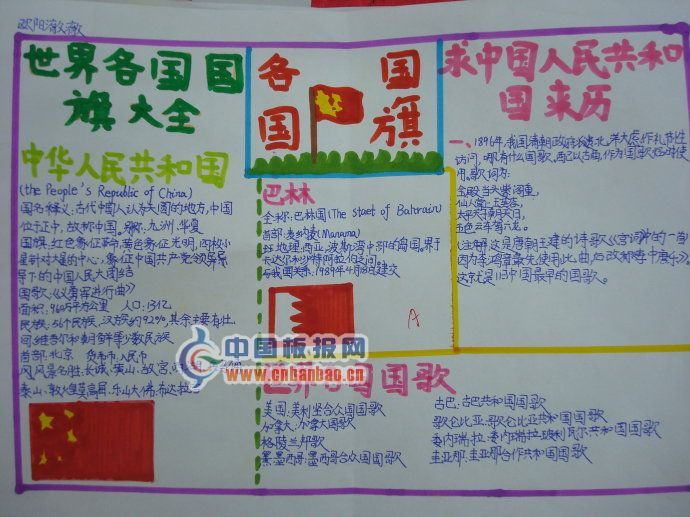 欧阳澈澈
世界各国国
旗大全
中华人民共和国
(the People's Republic of China)
国名释义:古代中国人认为天圆的地方,中国
位于正中,故称中国。别称:九洲、华夏
国旗:红色象征革命,黄色象征光明,四枚小
星针对大星的中心,象征中国共产党领导
导下的中国人民大团结
国歌:《义勇军进行曲》
面积:960万平方公里 人口:13亿
民族:56个民族,汉族约92%,其余主要有壮、
回、维吾尔和朝鲜等少数民族
首都:北京 货币:人民币
风景名胜:长城、黄山、故宫、
泰山、敦煌莫高窟、乐山大佛、布达拉
各国
国旗
巴林
全称:巴林国(The staet of Bahrain)
首都:麦纳麦(Manama)
地理:西亚,波斯湾中部的岛国。界于
卡达尔和沙特阿拉伯之间。
与我国关系:1989年4月18日建交
A
求中国人民共和
国来历
一、1896年,我国清朝政府
访问,哪有什么国歌,
用。歌词为:
金殿当头紫阁重,
仙人掌上玉芙蓉,
太平天子朝天日,
五色云车驾六龙。
(注解这是唐朝王建的诗歌《宫词》中的一首
因为李鸿章最先使用此曲,后改称李中唐乐》。
这就是旧中国最早的国歌。
中国板报网
www.cnbanbao.cn
世界各国国歌
美国:美利坚合众国国歌
加拿大:加拿大国歌
格陵兰邦歌
墨西哥:墨西哥合众国国歌
古巴:古巴共和国国歌
歌仑比亚:歌仑比亚共和国国歌
委内瑞拉:委内瑞拉玻利瓦尔共和国国歌
圭亚那:圭亚那合作共和国国歌